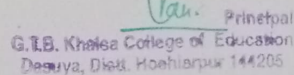 Principal
G.T.B. Khalsa College of Education
Dasuya, Distt. Hoshiarpur 144205